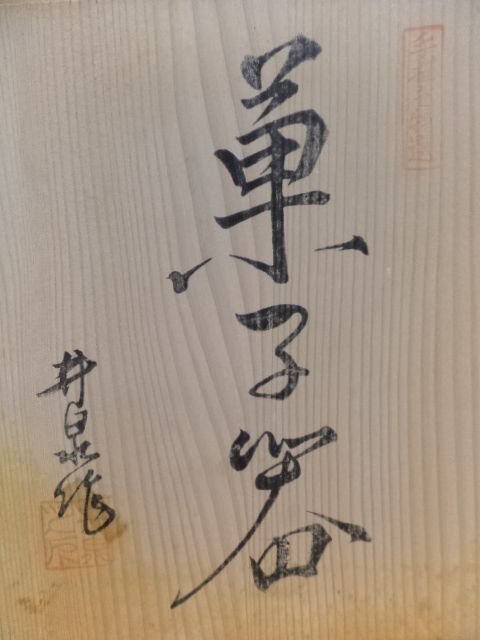 菓子器
井泉作